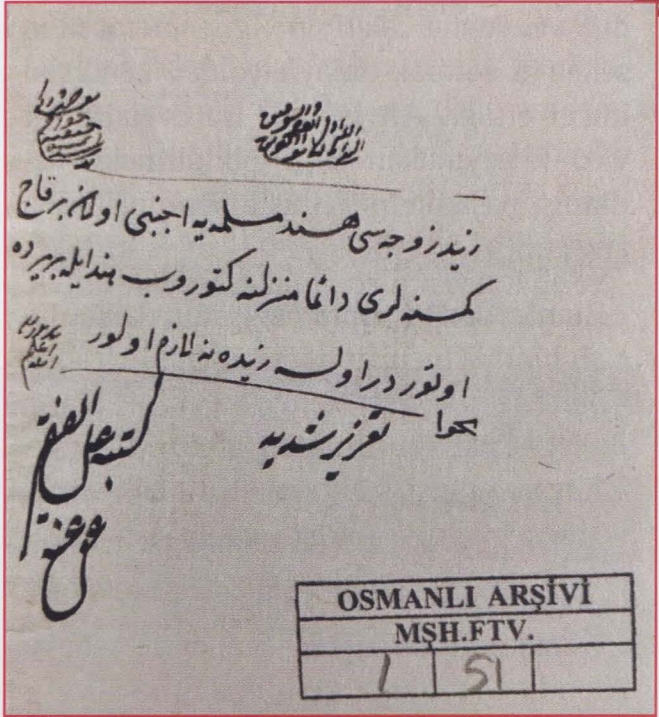 زيد زوجه سی هند مسلمه یه اجنبی اولان برقاچ
کمسنه لری دائما منزلنه کتوروب هند ایله بر یرده
اوتوردر اولسه زیده نه لازم اولور
تعزیر شدید
کتبه الفقیر
عفی عنه
OSMANLI ARŞİVİ
MŞH.FTV.
1 51